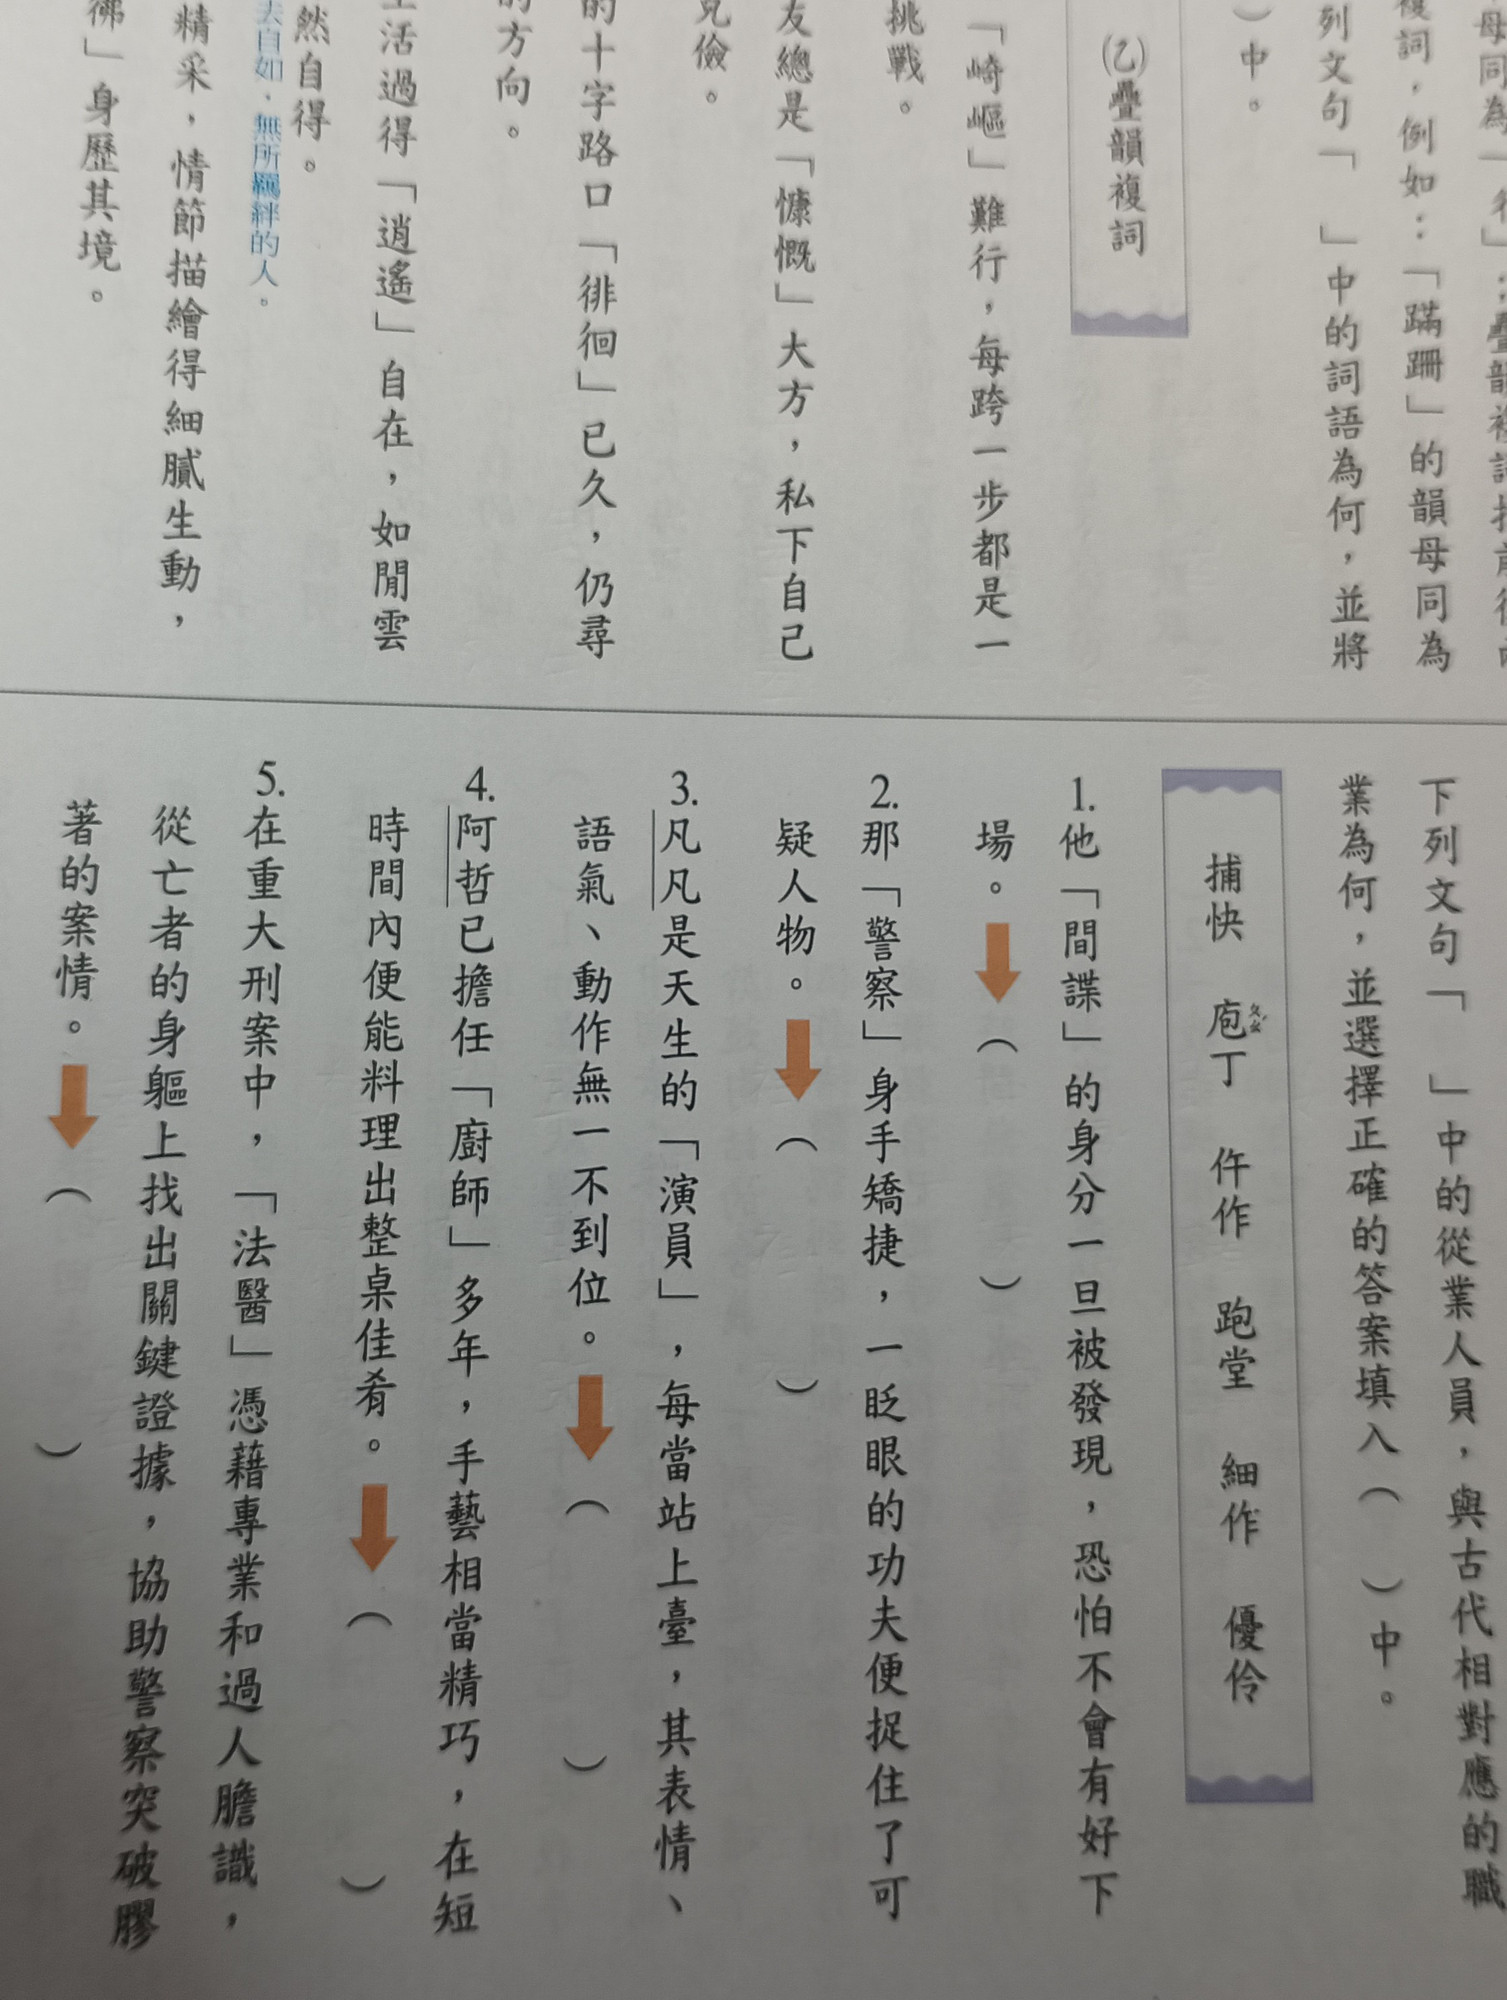 母同為
複詞，例如：「蹣跚」的韻母同為
列文句「　」中的詞語為何，並將
）中。
㈡疊韻複詞
「崎嶇」難行，每跨一步都是一
挑戰。
友總是「慷慨」大方，私下自己
儉。
的十字路口「徘徊」已久，仍尋
的方向。
活過得「逍遙」自在，如閒雲
然自得。
去自如、無所羈絆的人。
精采，情節描繪得細膩生動，
彿」身歷其境。
下列文句「　」中的從業人員，與古代相對應的職
業為何，並選擇正確的答案填入（　）中。
捕快　庖ㄆㄠˊ丁　仵作　跑堂　細作　優伶
1.他「間諜」的身分一旦被發現，恐怕不會有好下
場。（　）
2.那「警察」身手矯捷，一眨眼的功夫便捉住了可
疑人物。（　）
3.凡凡是天生的「演員」，每當站上臺，其表情、
語氣、動作無一不到位。（　）
4.阿哲已擔任「廚師」多年，手藝相當精巧，在短
時間內便能料理出整桌佳肴。（　）
5.在重大刑案中，「法醫」憑藉專業和過人膽識，
從亡者的身軀上找出關鍵證據，協助警察突破膠
著的案情。（　）